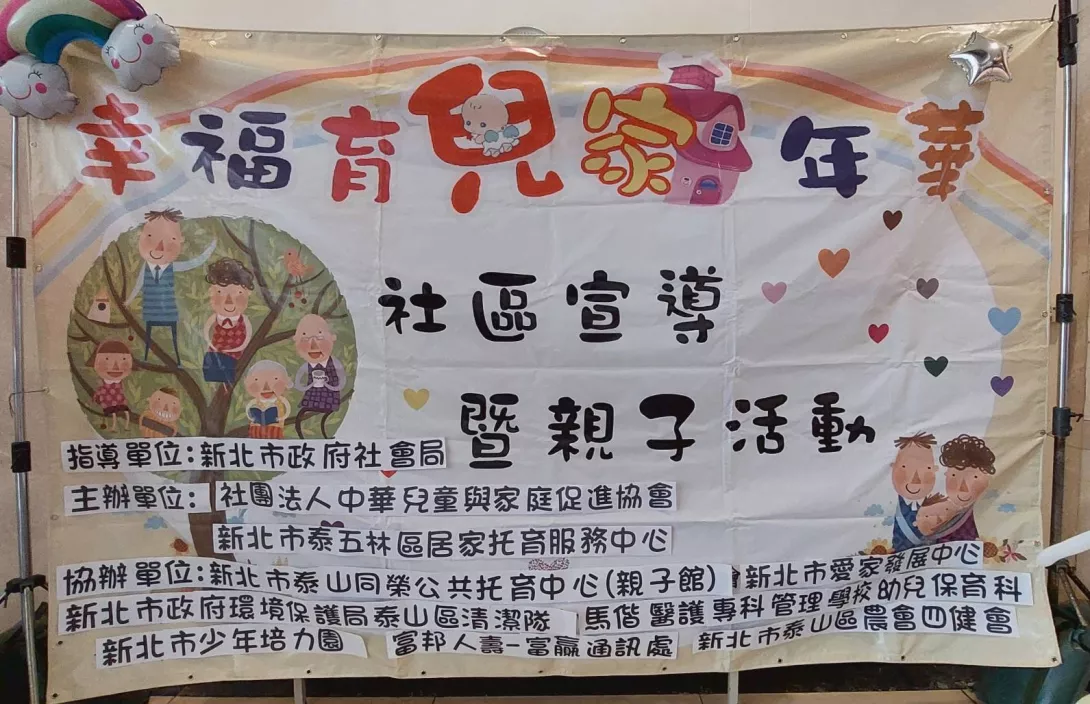 幸福育兒家年華
社區宣導
暨親子活動
指導單位:新北市政府社會局
主辦單位:社團法人中華兒童與家庭促進協會
新北市泰五林區居家托育服務中心
協辦單位:新北市泰山同榮公共托育中心(親子館) 新北市愛家發展中心
新北市政府環境保護局泰山區清潔隊 馬偕醫護專科管理學校幼兒保育科
新北市少年培力園 富邦人壽-富贏通訊處 新北市泰山區農會四健會